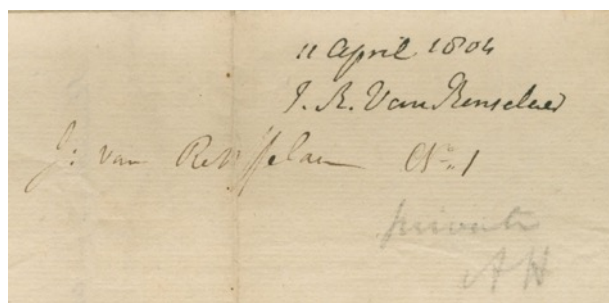 11 April 1804
J. R. Van Renselaer
J: van Rensselaer No. 1
private
A H